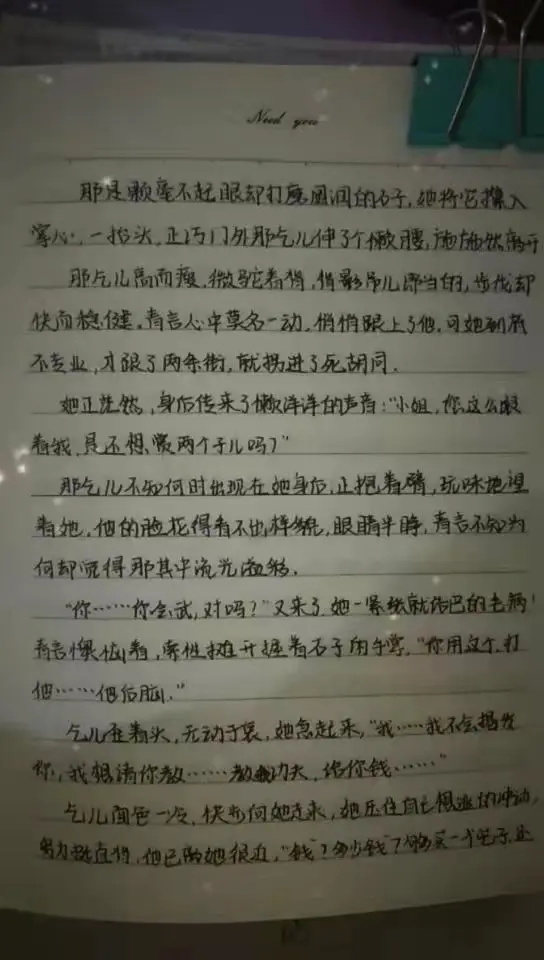 Need you
那是颗毫不起眼却打磨圆润的石子，她将它攥入
掌心，一抬头，正巧门外那乞儿伸了个懒腰，施施然离开
那乞儿高而瘦，微驼着背，借影吊儿郎当的，步伐却
快而稳健。青言心中莫名一动，悄悄跟上了他，可她到底
不专业，才跟了两条街，就拐进了死胡同。
她正茫然，身后传来了懒洋洋的声音：“小姐，你这么跟
着我，是还想赏两个子儿吗？”
那乞儿不知何时出现在她身后，正抱着臂，玩味地望
着她，他的脸花得看不出样貌，眼睛半睁，青言不知为
何却觉得那其中流光溢彩。
“你……你会武，对吗？”又来了，她一紧张就结巴的毛病
青言懊恼着，索性摊开握着石子的手掌，“你用这个，打
他……他后脑。”
乞儿歪着头，无动于衷，她急起来，“我……我不会揭发
你，我想请你教……教我功夫，给你钱……”
乞儿面色一冷，快步向她走来，她压住自己想逃的冲动，
努力挺直背，他已离她很近，“钱？多少钱？够买一个宅子，还